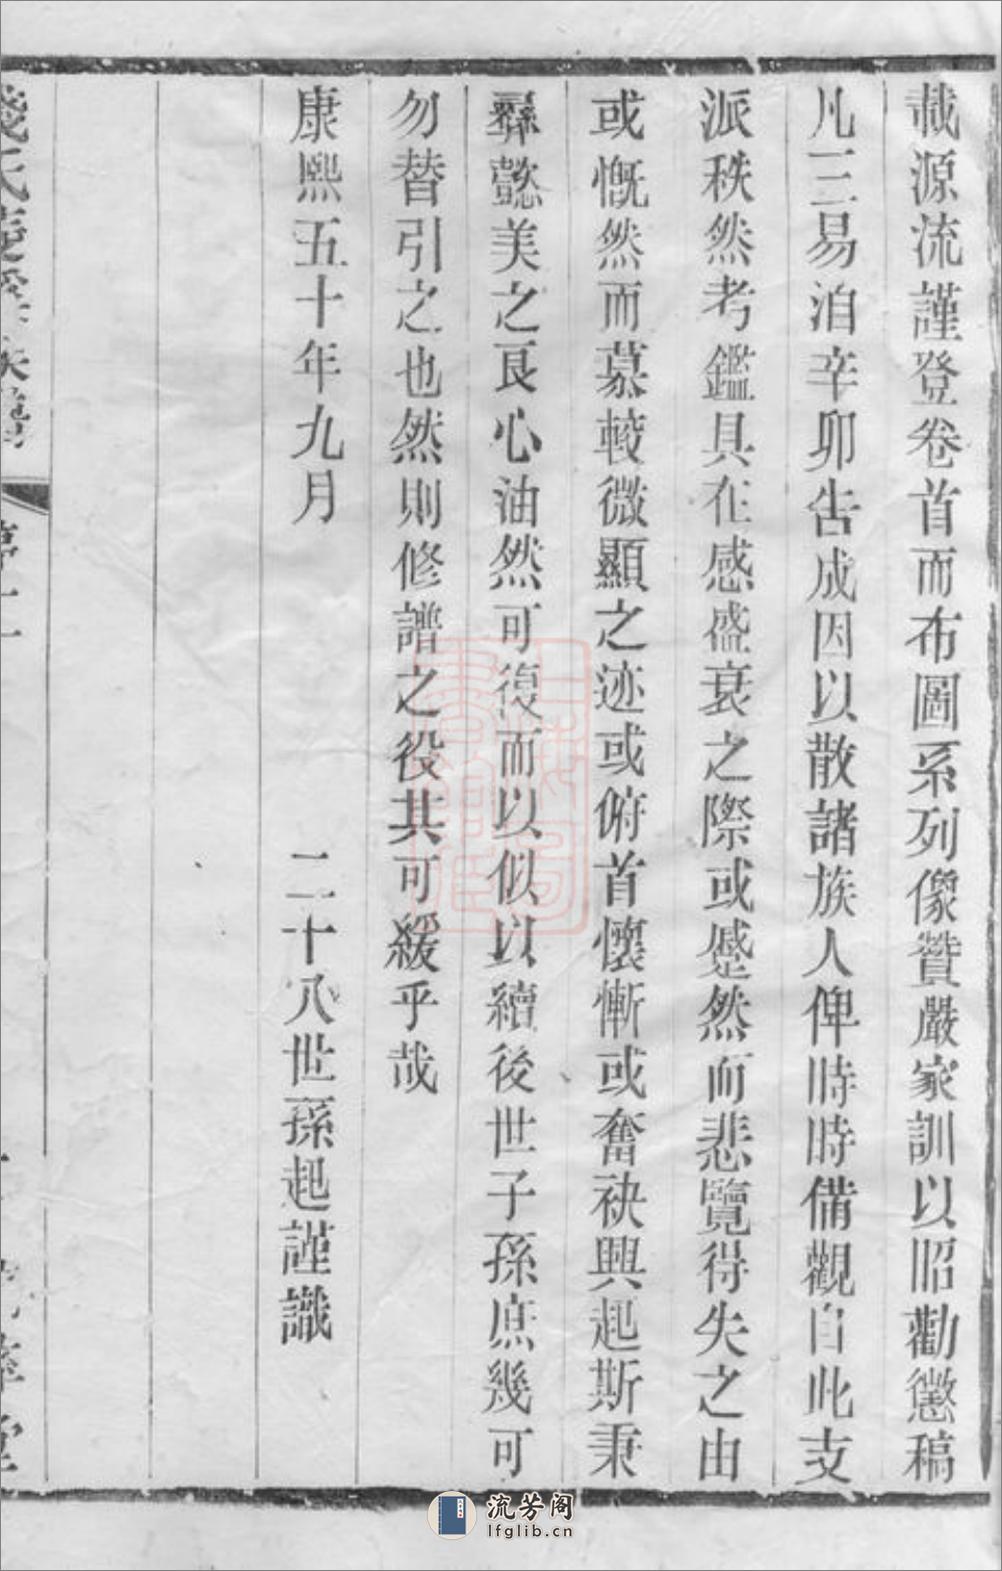 載源流謹登卷首而布圖系列像贊嚴家訓以昭勸懲稿
凡三易洎辛卯告成因以散諸族人俾時時備觀自此支
派秩然考鑑具在感盛衰之際或愾然而悲覽得失之由
或慨然而慕較微顯之迹或俯首懷慚或奮袂興起斯秉
彝懿美之良心油然可復而以似以續後世子孫庶幾可
勿替引之也然則修譜之役其可緩乎哉
康熙五十年九月
二十八世孫起謹識
流芳阁
lfglib.cn